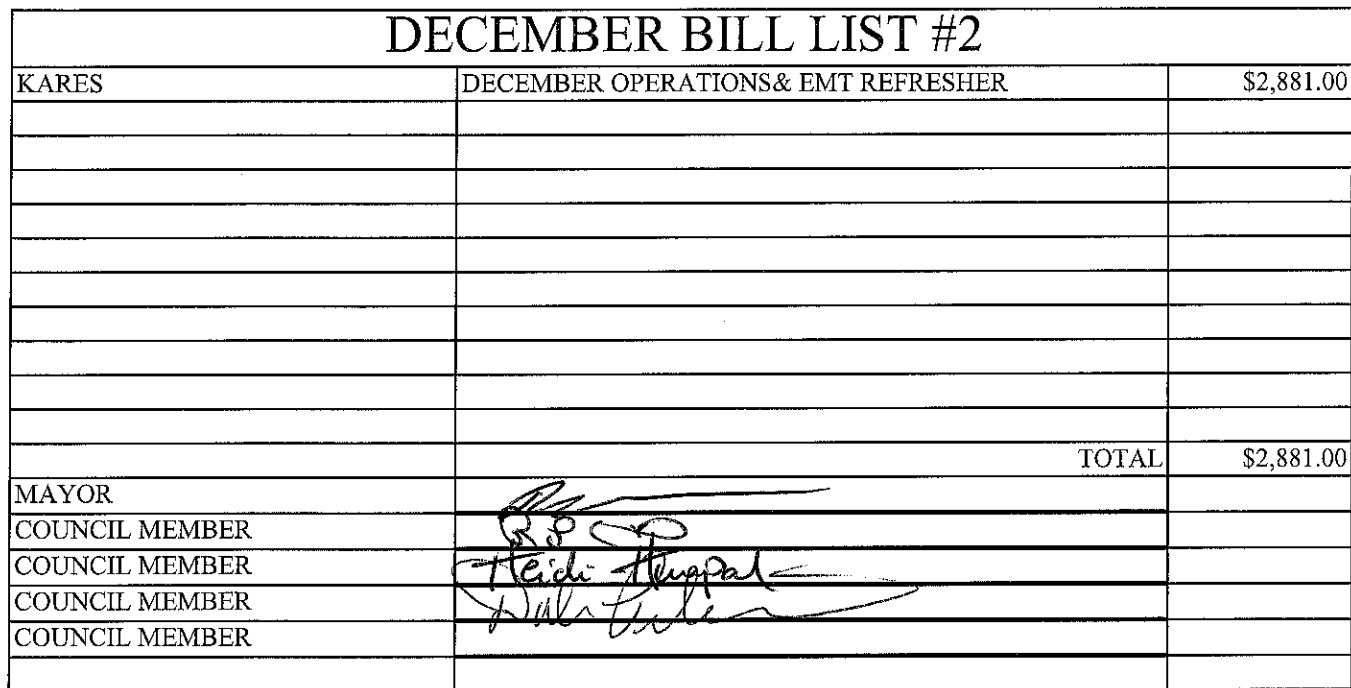 DECEMBER BILL LIST #2
KARES DECEMBER OPERATIONS& EMT REFRESHER $2,881.00
TOTAL $2,881.00
MAYOR
COUNCIL MEMBER
COUNCIL MEMBER Heidi
COUNCIL MEMBER
COUNCIL MEMBER